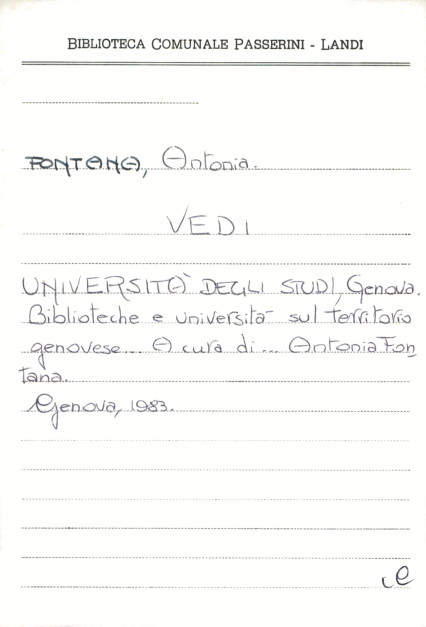 BIBLIOTECA COMUNALE PASSERINI - LANDI
FONTANA, Antonia.
VEDI
UNIVERSITÀ DEGLI STUDI, Genova.
Biblioteche e università sul territorio
genovese... A cura di... Antonia Fon
tana.
Genova, 1983.